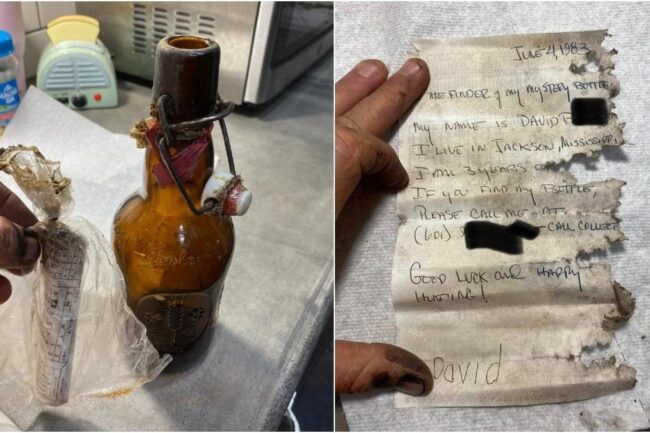 JUNE 4, 1983
HE FINDER of MY MYSTERY BOTTLE
MY NAME IS DAVID
I LIVE IN JACKSON, MISSISSIPPI
I AM 3 YEARS
IF YOU FIND MY BOTTLE,
PLEASE CALL ME AT
(601) CALL COLLECT
GOOD LUCK AND HAPPY
HUNTING!
DAVID